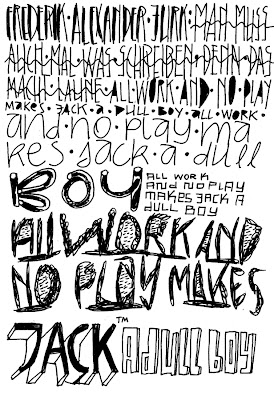 FREDERIK·ALEXANDER·JURK·MAN·MUSS·
AUCH·MAL·WAS·SCHREIBEN·DENN·DAS·
MACHT·LAUNE·ALL·WORK·AND·NO·PLAY
MAKES·JACK·A·DULL·BOY·ALL·WORK·
and·no·play·ma
kes·jack·a·dull
BOY
ALL WORK
AND NO PLAY
MAKES JACK A
DULL BOY
ALL WORK AND
NO PLAY MAKES
JACK™ A DULL BOY